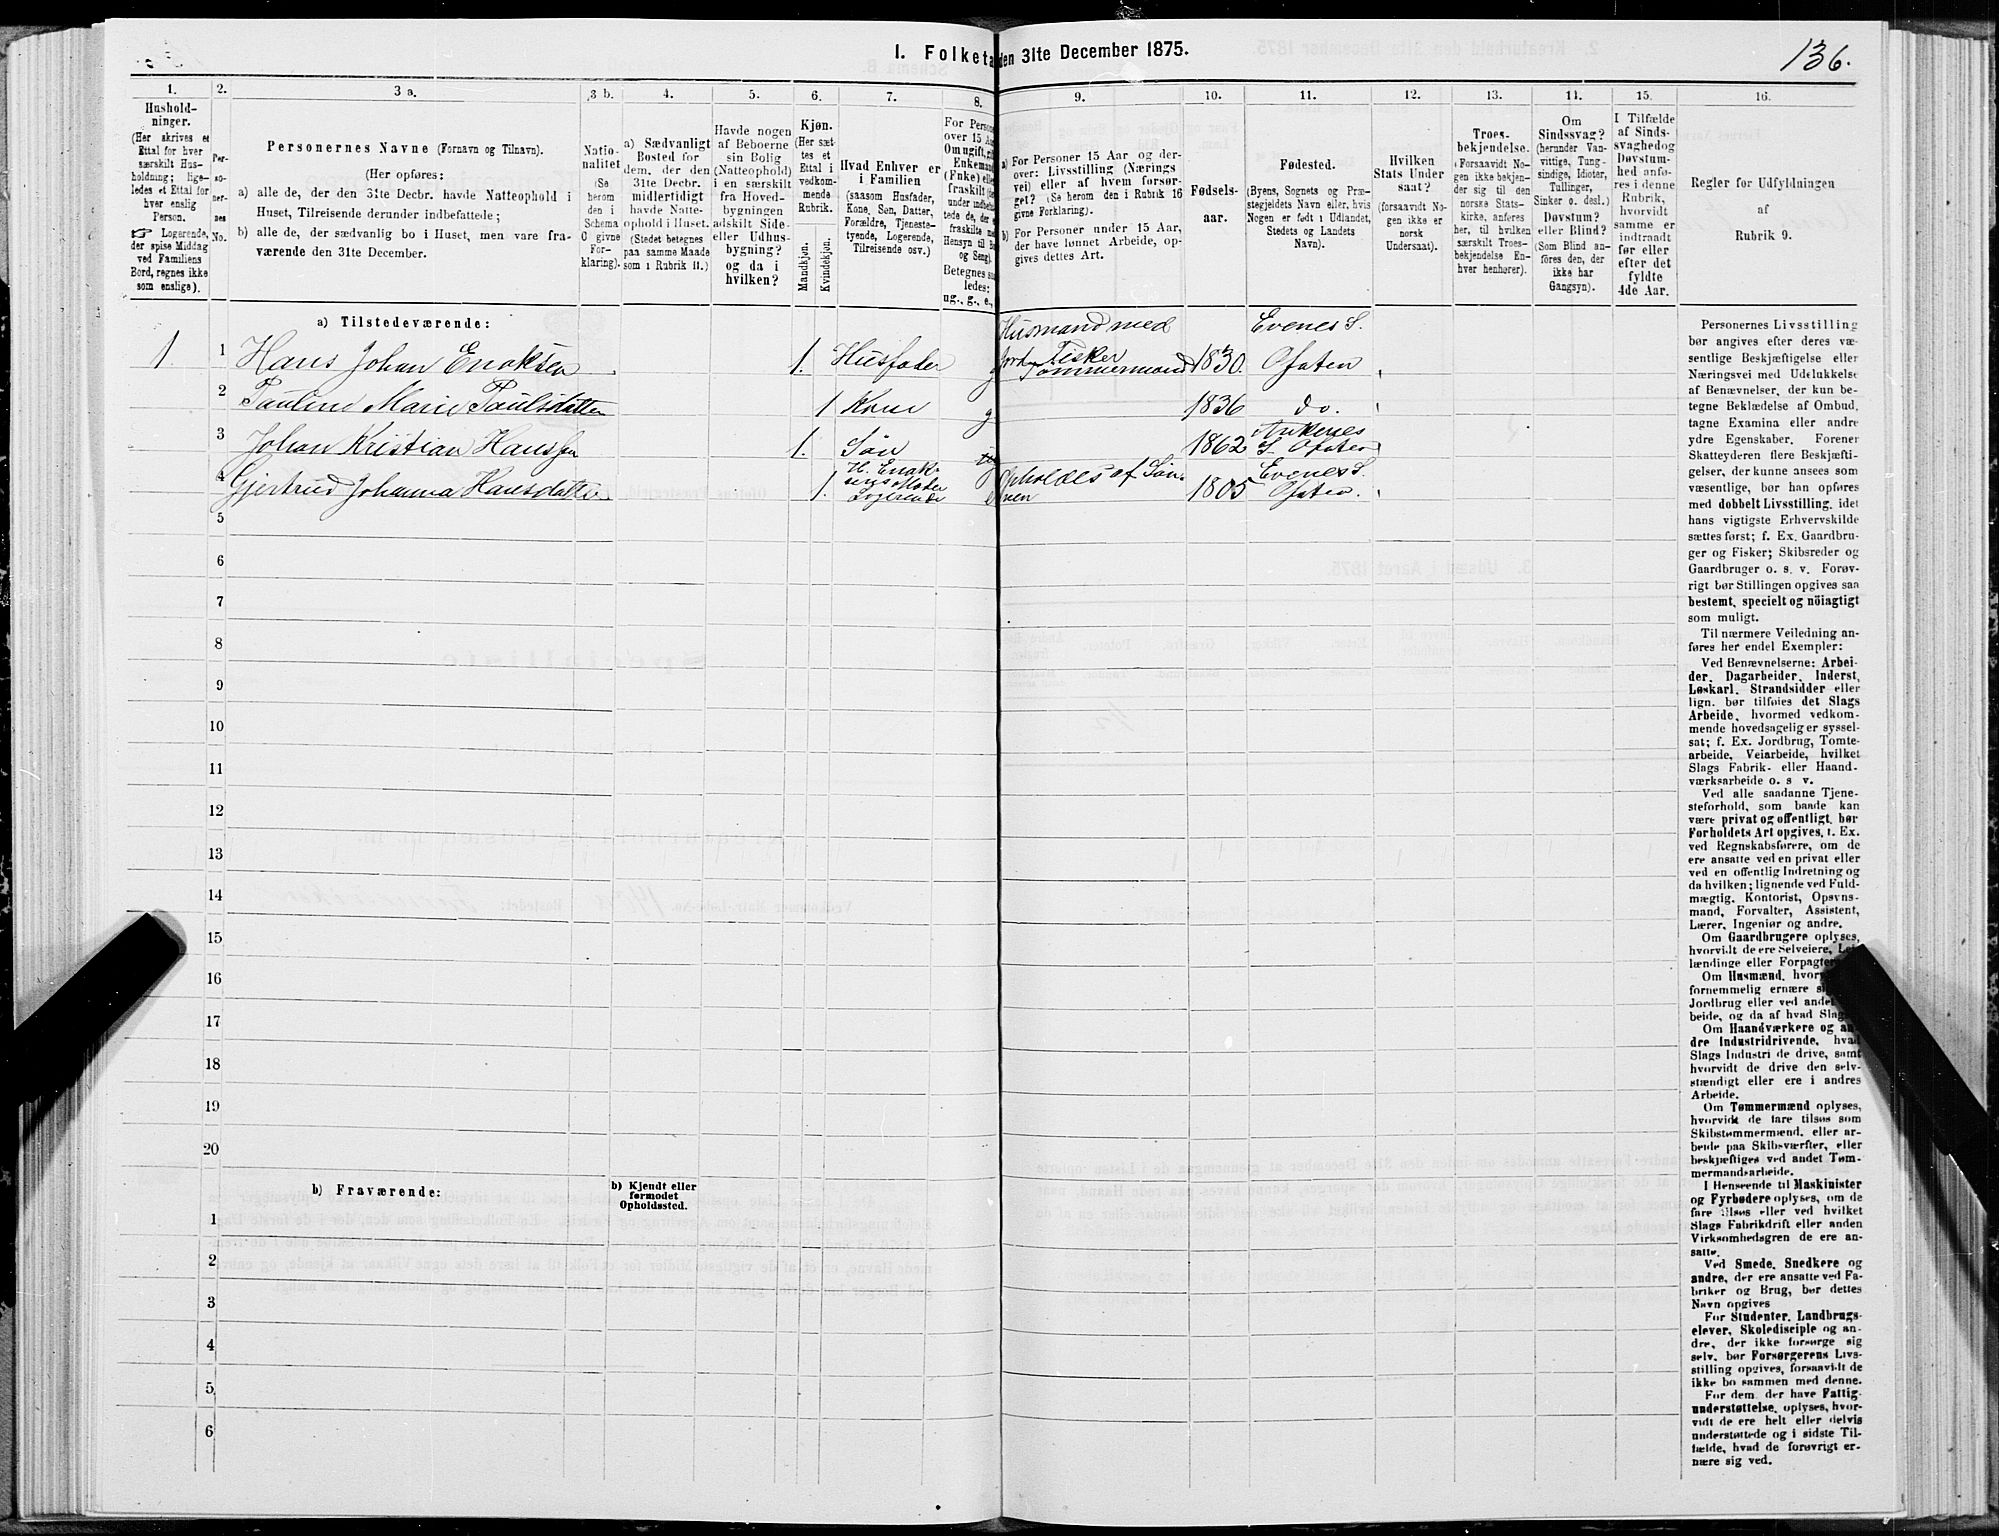 136.
I. Folketa den 31te December 1875.
1. 2. 3 a. 3 b. 4. 5. 6. 7. 8. 9. 10. 11. 12. 13. 14. 15. 16.
Hushold-
ninger.
(Her skrives et
Ettal for hver
særskilt Hus-
holdning; lige-
ledes et Ettal for
hver enslig
Person.
☞ Logerende,
der spise Middag
ved Familiens
Bord, regnes ikke
som enslige).
Per-
so-
ner-
nes
No.
Personernes Navne (Fornavn og Tilnavn).
(Her opføres:
a) alle de, der den 31te Decbr. havde Natteophold i
Huset, Tilreisende derunder indbefattede;
b) alle de, der sædvanlig bo i Huset, men vare fra-
værende den 31te December.
Natio-
nalitet
(Se
herom
den i
Schema
O givne
For-
klaring).
a) Sædvanligt
Bosted for
dem, der den
31te Decbr.
midlertidigt
havde Natte-
ophold i Huset.
(Stedet betegnes
paa samme Maade
som i Rubrik 11.)
Havde nogen
af Beboerne
sin Bolig
(Natteophold)
i en særskilt
fra Hoved-
bygningen
adskilt Side-
eller Udhus-
bygning?
og da i
hvilken?
Kjøn.
(Her sæt-
tes et
Ettal i
vedkom-
mende
Rubrik.
Mandkjøn.
Kvindekjøn.
Hvad Enhver er
i Familien
(saasom Husfader,
Kone, Søn, Datter,
Forældre, Tjeneste-
tyende, Logerende,
Tilreisende osv.)
For Person
over 15 Aa
Om ugift, gift
Enkemand
(Enke) eller
fraskilt
Betegnes saa
ledes:
ug., g., e.,
a) For Personer 15 Aar og der-
over: Livsstilling (Nærings
vei) eller af hvem forsør-
get? (Se herom den i Rubrik 16
givne Forklaring).
b) For Personer under 15 Aar,
der have lønnet Arbeide, op-
gives dettes Art.
Fødsels-
aar.
Fødested.
(Byens, Sognets og Præ-
stegjeldets Navn eller, hvis
Nogen er født i Udlandet,
Stedets og Landets
Navn).
Hvilken
Stats Under
saat?
(forsaavidt No-
gen ikke er
norsk
Undersaat).
Troes-
bekjendelse.
(Forsaavidt No-
gen ikke bekjen-
der sig til den
norske Stats-
kirke, anføres
her, til hvilken
særskilt Troes-
bekjendelse En-
hver henhører).
Om
Sindssvag?
(herunder Van-
vittige, Tung-
sindige, Idioter,
Tullinger,
Sinker o. desl.)
Døvstum?
eller Blind?
(Som Blind an-
føres den, der
ikke har
Gangsyn).
I Tilfælde
af Sinds-
svaghed og
Døvstum-
hed anfø-
res i denne
Rubrik,
hvorvidt
samme er
indtraadt
før eller
efter det
fyldte
4de Aar.
Regler for Udfyldningen
af
Rubrik 9.
a) Tilstedeværende:
1 1 Hans Johan Enoksen 1. Husfader g Husmand med Jord Fisker Tømmermand 1830. Evenes S. Ofoten
2 Pauline Marie Paulsdatter 1 Kone g 1836 do.
3 Johan Kristian Hanssen 1. Søn 1862 Ankenes S. Ofoten
4 Gjertrud Johanna Hansdatter 1. H. Enok-sens Moder Logerende e Opholdes af Søn-nen 1805 Evenes S. Ofoten.
5
6
7
8
9
10
11
12
13
14
15
16
17
18
19
20
b) Fraværende:
b) Kjendt eller
formodet
Opholdssted.
1
2
3
4
5
6
Personernes Livsstilling
bør angives efter deres væ-
sentlige Beskjæftigelse eller
Næringsvei med Udelukkelse
af Benævnelser, der kun be-
tegne Beklædelse af Ombud,
tagne Examina eller andre
ydre Egenskaber. Forener
Skatteyderen flere Beskjæfti-
gelser, der kunne ansees som
væsentlige, bør han opføres
med dobbelt Livsstilling, idet
hans vigtigste Erhvervskilde
sættes først; f. Ex. Gaardbru-
ger og Fisker; Skibsreder og
Gaardbruger o. s. v. Forøv-
rigt bør Stillingen opgives saa
bestemt, specielt og nöiagtigt
som muligt.
Til nærmere Veiledning an-
føres her endel Exempler:
Ved Benævnelserne: Arbei-
der, Dagarbeider, Inderst,
Løskarl, Strandsidder eller
lign. bør tilføies det Slags
Arbeide, hvormed vedkom-
mende hovedsagelig er syssel-
sat; f. Ex. Jordbrug, Tomte-
arbeide, Veiarbeide, hvilket
Slags Fabrik- eller Haand-
værksarbeide o. s v.
Ved alle saadanne Tjene-
steforhold, som baade kan
være privat og offentligt, bør
Forholdets Art opgives, t. Ex.
ved Regnskabsførere, om de
ere ansatte ved en privat eller
ved en offentlig Indretning og
da hvilken; lignende ved Fuld-
mægtig, Kontorist, Opsyns-
mand, Forvalter, Assistent,
Lærer, Ingeniør og andre.
Om Gaardbrugere oplyses,
hvorvidt de ere Selveiere, Lei-
lændinge eller Forpagtere
Om Husmænd, hvor
fornemmelig ernære si
Jordbrug eller ved andet
beide, og da af hvad Slag
Om Haandværkere og an-
dre Industridrivende, hvad
Slags Industri de drive, samt
hvorvidt de drive den selv-
stændigt eller ere i andres
Arbeide.
Om Tømmermænd oplyses,
hvorvidt de fare tilsøs som
Skibstømmermænd, eller ar-
beide paa Skibsværfter, eller
beskjæftiges ved andet Tøm-
mermandsarbeide.
I Henseende til Maskinister
og Fyrbødere oplyses, om de
fare tilsøs eller ved hvilket
Slags Fabrikdrift eller anden
Virksomhedsgren de ere an-
satte.
Ved Smede, Snedkere og
andre, der ere ansatte ved Fa-
briker og Brug, bør dettes
Navn opgives
For Studenter, Landbrugs-
elever, Skoledisciple og an-
dre, der ikke forsørge sig
selv, bør Forsørgerens Livs-
stilling opgives, forsaavidt de
ikke bo sammen med denne.
For dem, der have Fattig-
understøttelse, oplyses, hvor-
vidt de ere helt eller delvis
understøttede og i sidste Til-
fælde, hvad de forøvrigt er-
nære sig ved.